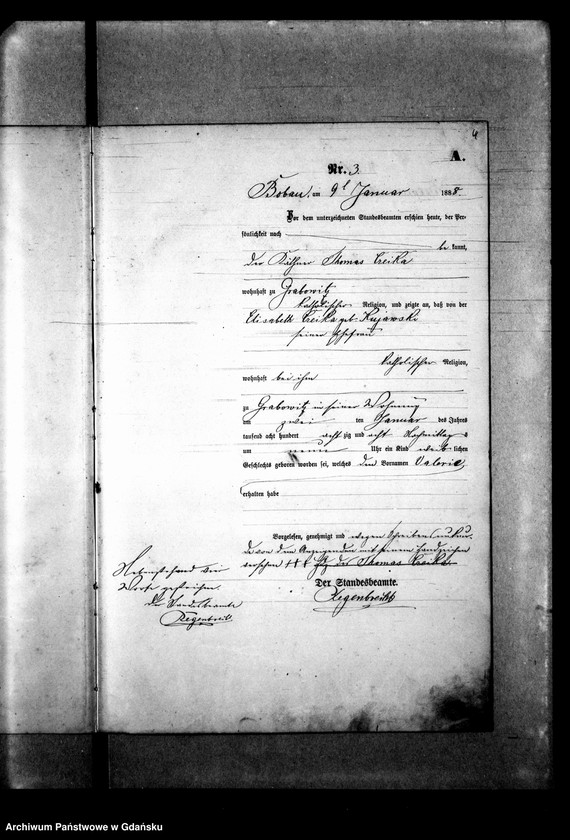 4
A.
Nr. 3.
Bobau, am 9t Januar 1888.
Vor dem unterzeichneten Standesbeamten erschien heute, der Per-
sönlichkeit nach
be kannt,
der Käthner Thomas Czeika
wohnhaft zu Grabowitz
katholischer Religion, und zeigte an, daß von der
Elisabeth Czeika geb. Kujawski
seiner Ehefrau
katholischer Religion,
wohnhaft bei ihm
zu Grabowitz in seiner Wohnung
am zwei ten Januar des Jahres
tausend acht hundert acht zig und acht Nachmittags
um neun Uhr ein Kind weib lichen
Geschlechts geboren worden sei, welches den Vornamen Valerie
erhalten habe
Vorgelesen, genehmigt und wegen Schreibensunkun-
de von dem Anzeigenden mit seinem Handzeichen
versehen +++ Hz des Thomas Czeika
Nebenstehend drei
Worte gestrichen.
Der Standesbeamte
Regenbrecht
Der Standesbeamte.
Regenbrecht
Archiwum Państwowe w Gdańsku